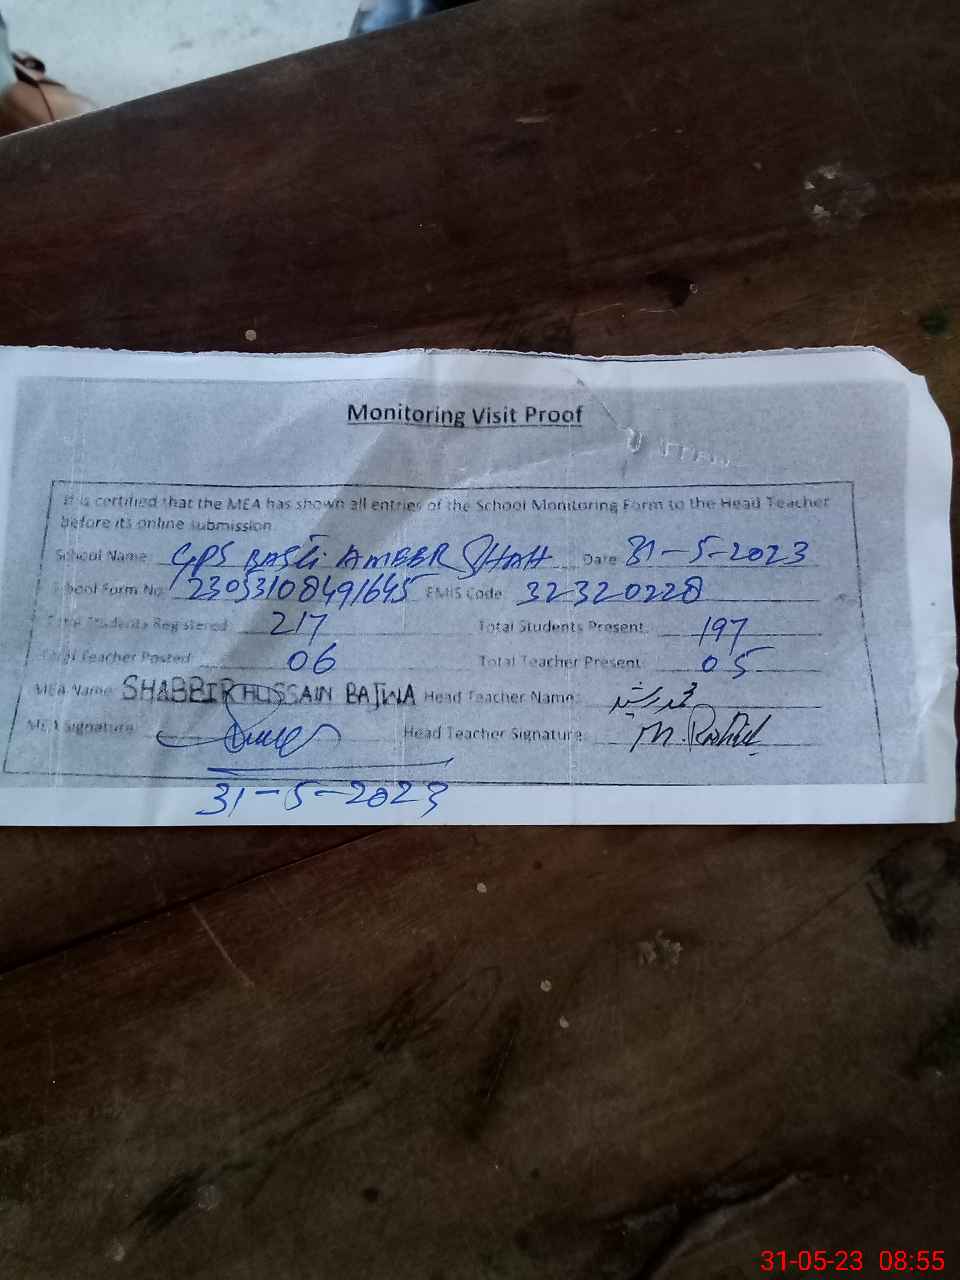 Monitoring Visit Proof
It is certified that the MEA has shown all entries of the School Monitoring Form to the Head Teacher
before its online submission.
School Name: GPS BASTI AMEER SHAH Date: 31-5-2023
School Form No: 23053108491645 EMIS Code: 32320228
Total Students Registered: 217 Total Students Present: 197
Total Teacher Posted: 06 Total Teacher Present: 05
MEA Name: SHABBIR HUSSAIN BAJWA Head Teacher Name: محمد رشید
MEA Signature: Head Teacher Signature: M. Rashid
31-5-2023
31-05-23 08:55